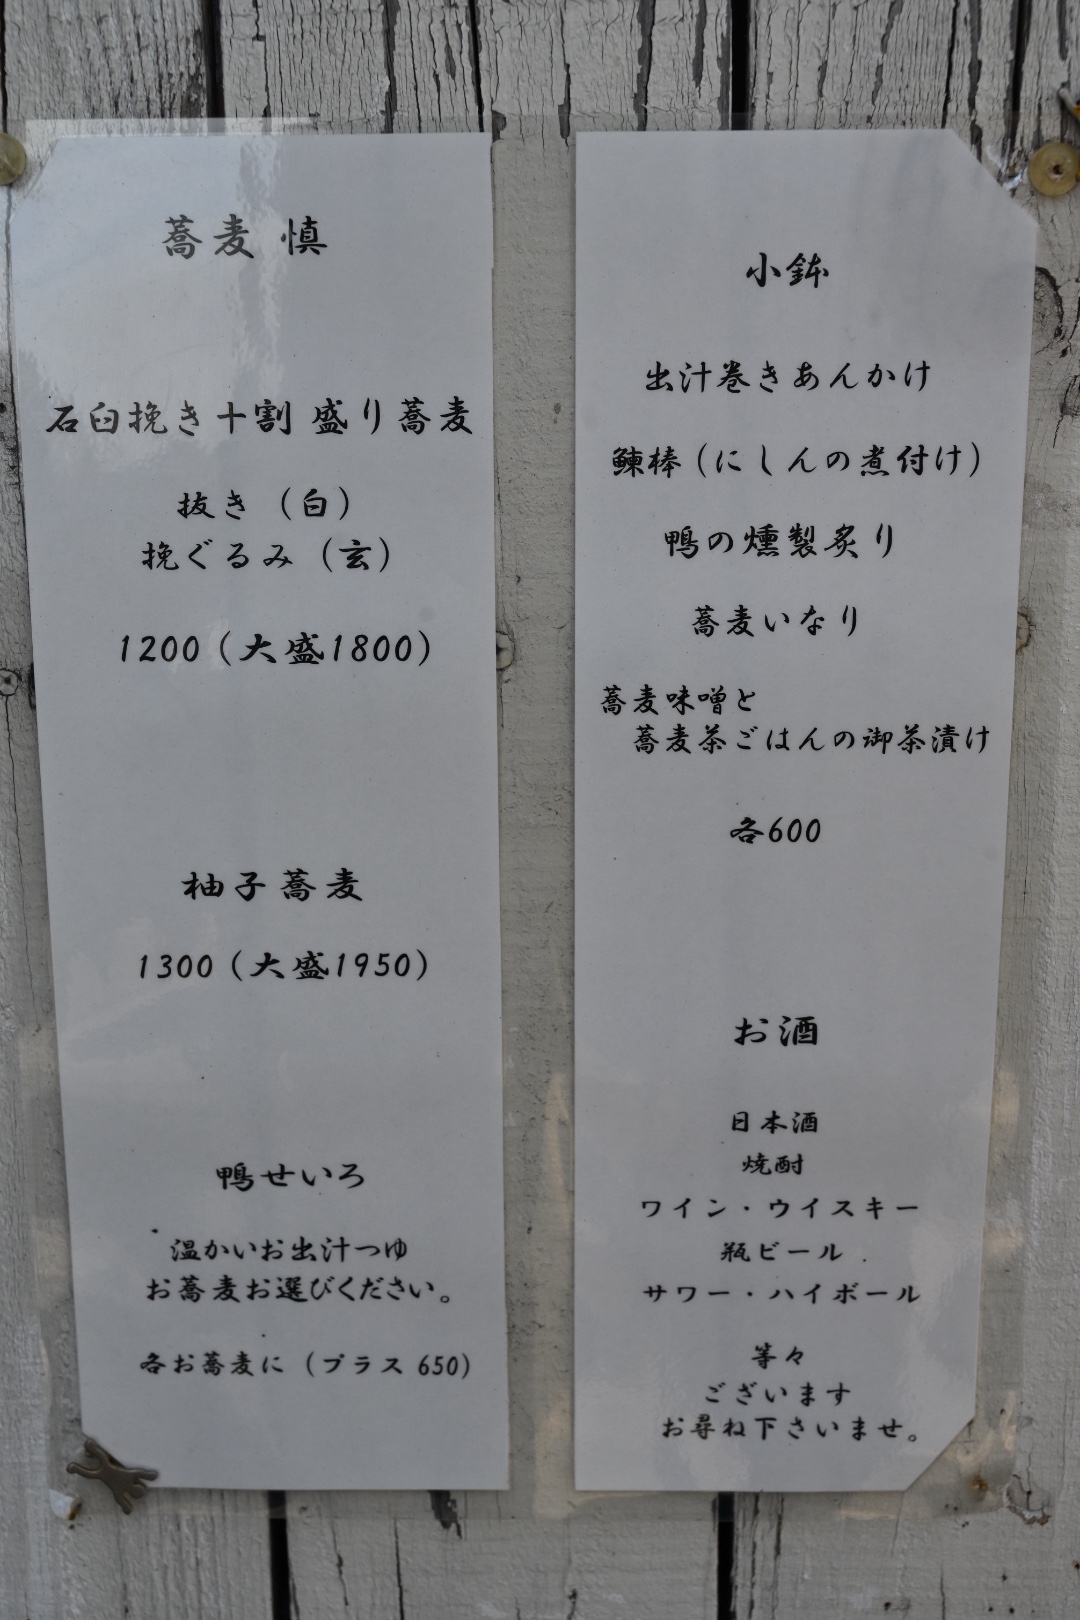 蕎麦 慎
石臼挽き十割 盛り蕎麦
抜き（白）
挽ぐるみ（玄）
1200（大盛1800）
柚子蕎麦
1300（大盛1950）
鴨せいろ
温かいお出汁つゆ
お蕎麦お選びください。
各お蕎麦に（プラス 650）
小鉢
出汁巻きあんかけ
鰊棒（にしんの煮付け）
鴨の燻製炙り
蕎麦いなり
蕎麦味噌と
蕎麦茶ごはんの御茶漬け
各600
お酒
日本酒
焼酎
ワイン・ウイスキー
瓶ビール
サワー・ハイボール
等々
ございます
お尋ね下さいませ。